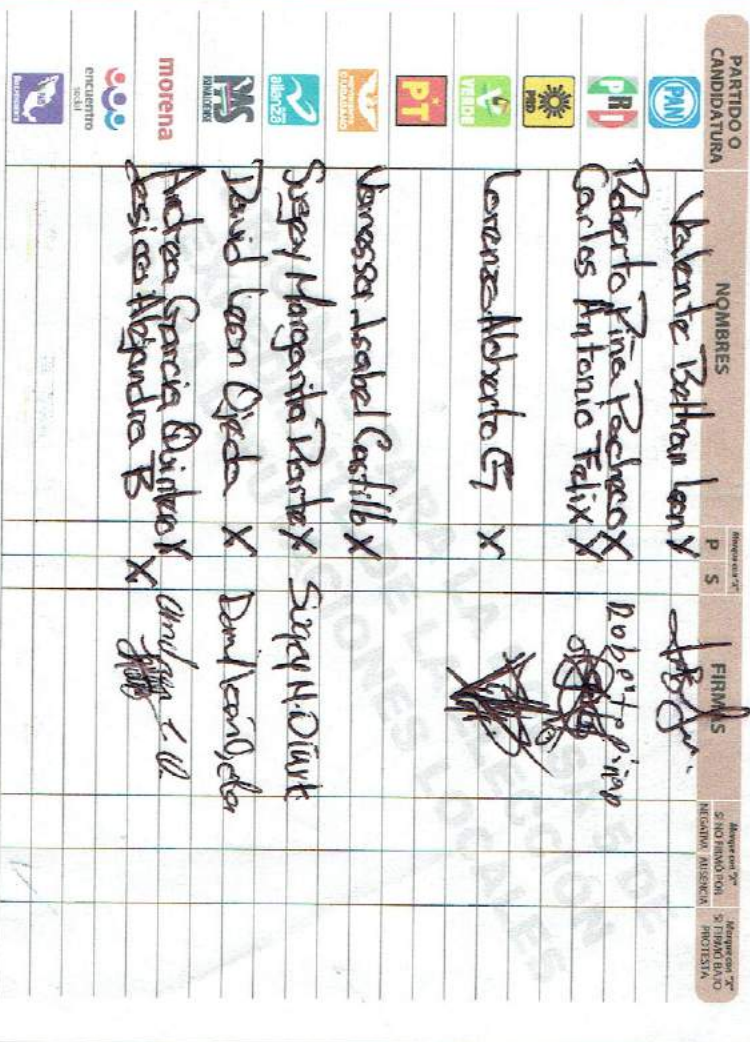 PARTIDO O
CANDIDATURA
NOMBRES
Marque con "X"
P S
FIRMAS
Marque con "X"
SI NO FIRMÓ POR
NEGATIVA AUSENCIA
Marque con "X"
SI FIRMÓ BAJO
PROTESTA
PAN Valente Beltran Leon X
PRI Roberto Piña Pacheco X Roberto Piñap
Carlos Antonio Felix X
PRD
VERDE Lorenzo Alberto X
PT
MOVIMIENTO CIUDADANO Vanessa Isabel Castillo X
alianza Sugey Margarita Duarte X Sugey M. Duarte
PAS SINALOENSE David Leon Ojeda X David Leon Ojeda
morena Andrea Garcia Quintero X
Jessica Alejandra B X
encuentro social
INDEPENDIENTE
5 DE
PARA LA
DE LA ELECCIÓN
LOCALES